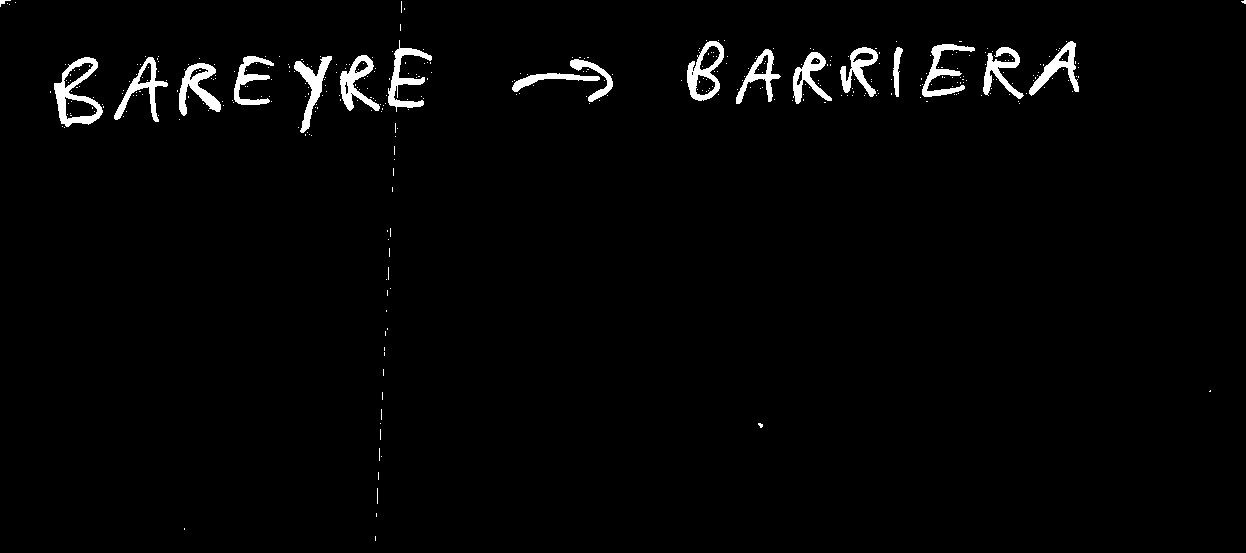 BAREYRE → BARRIERA